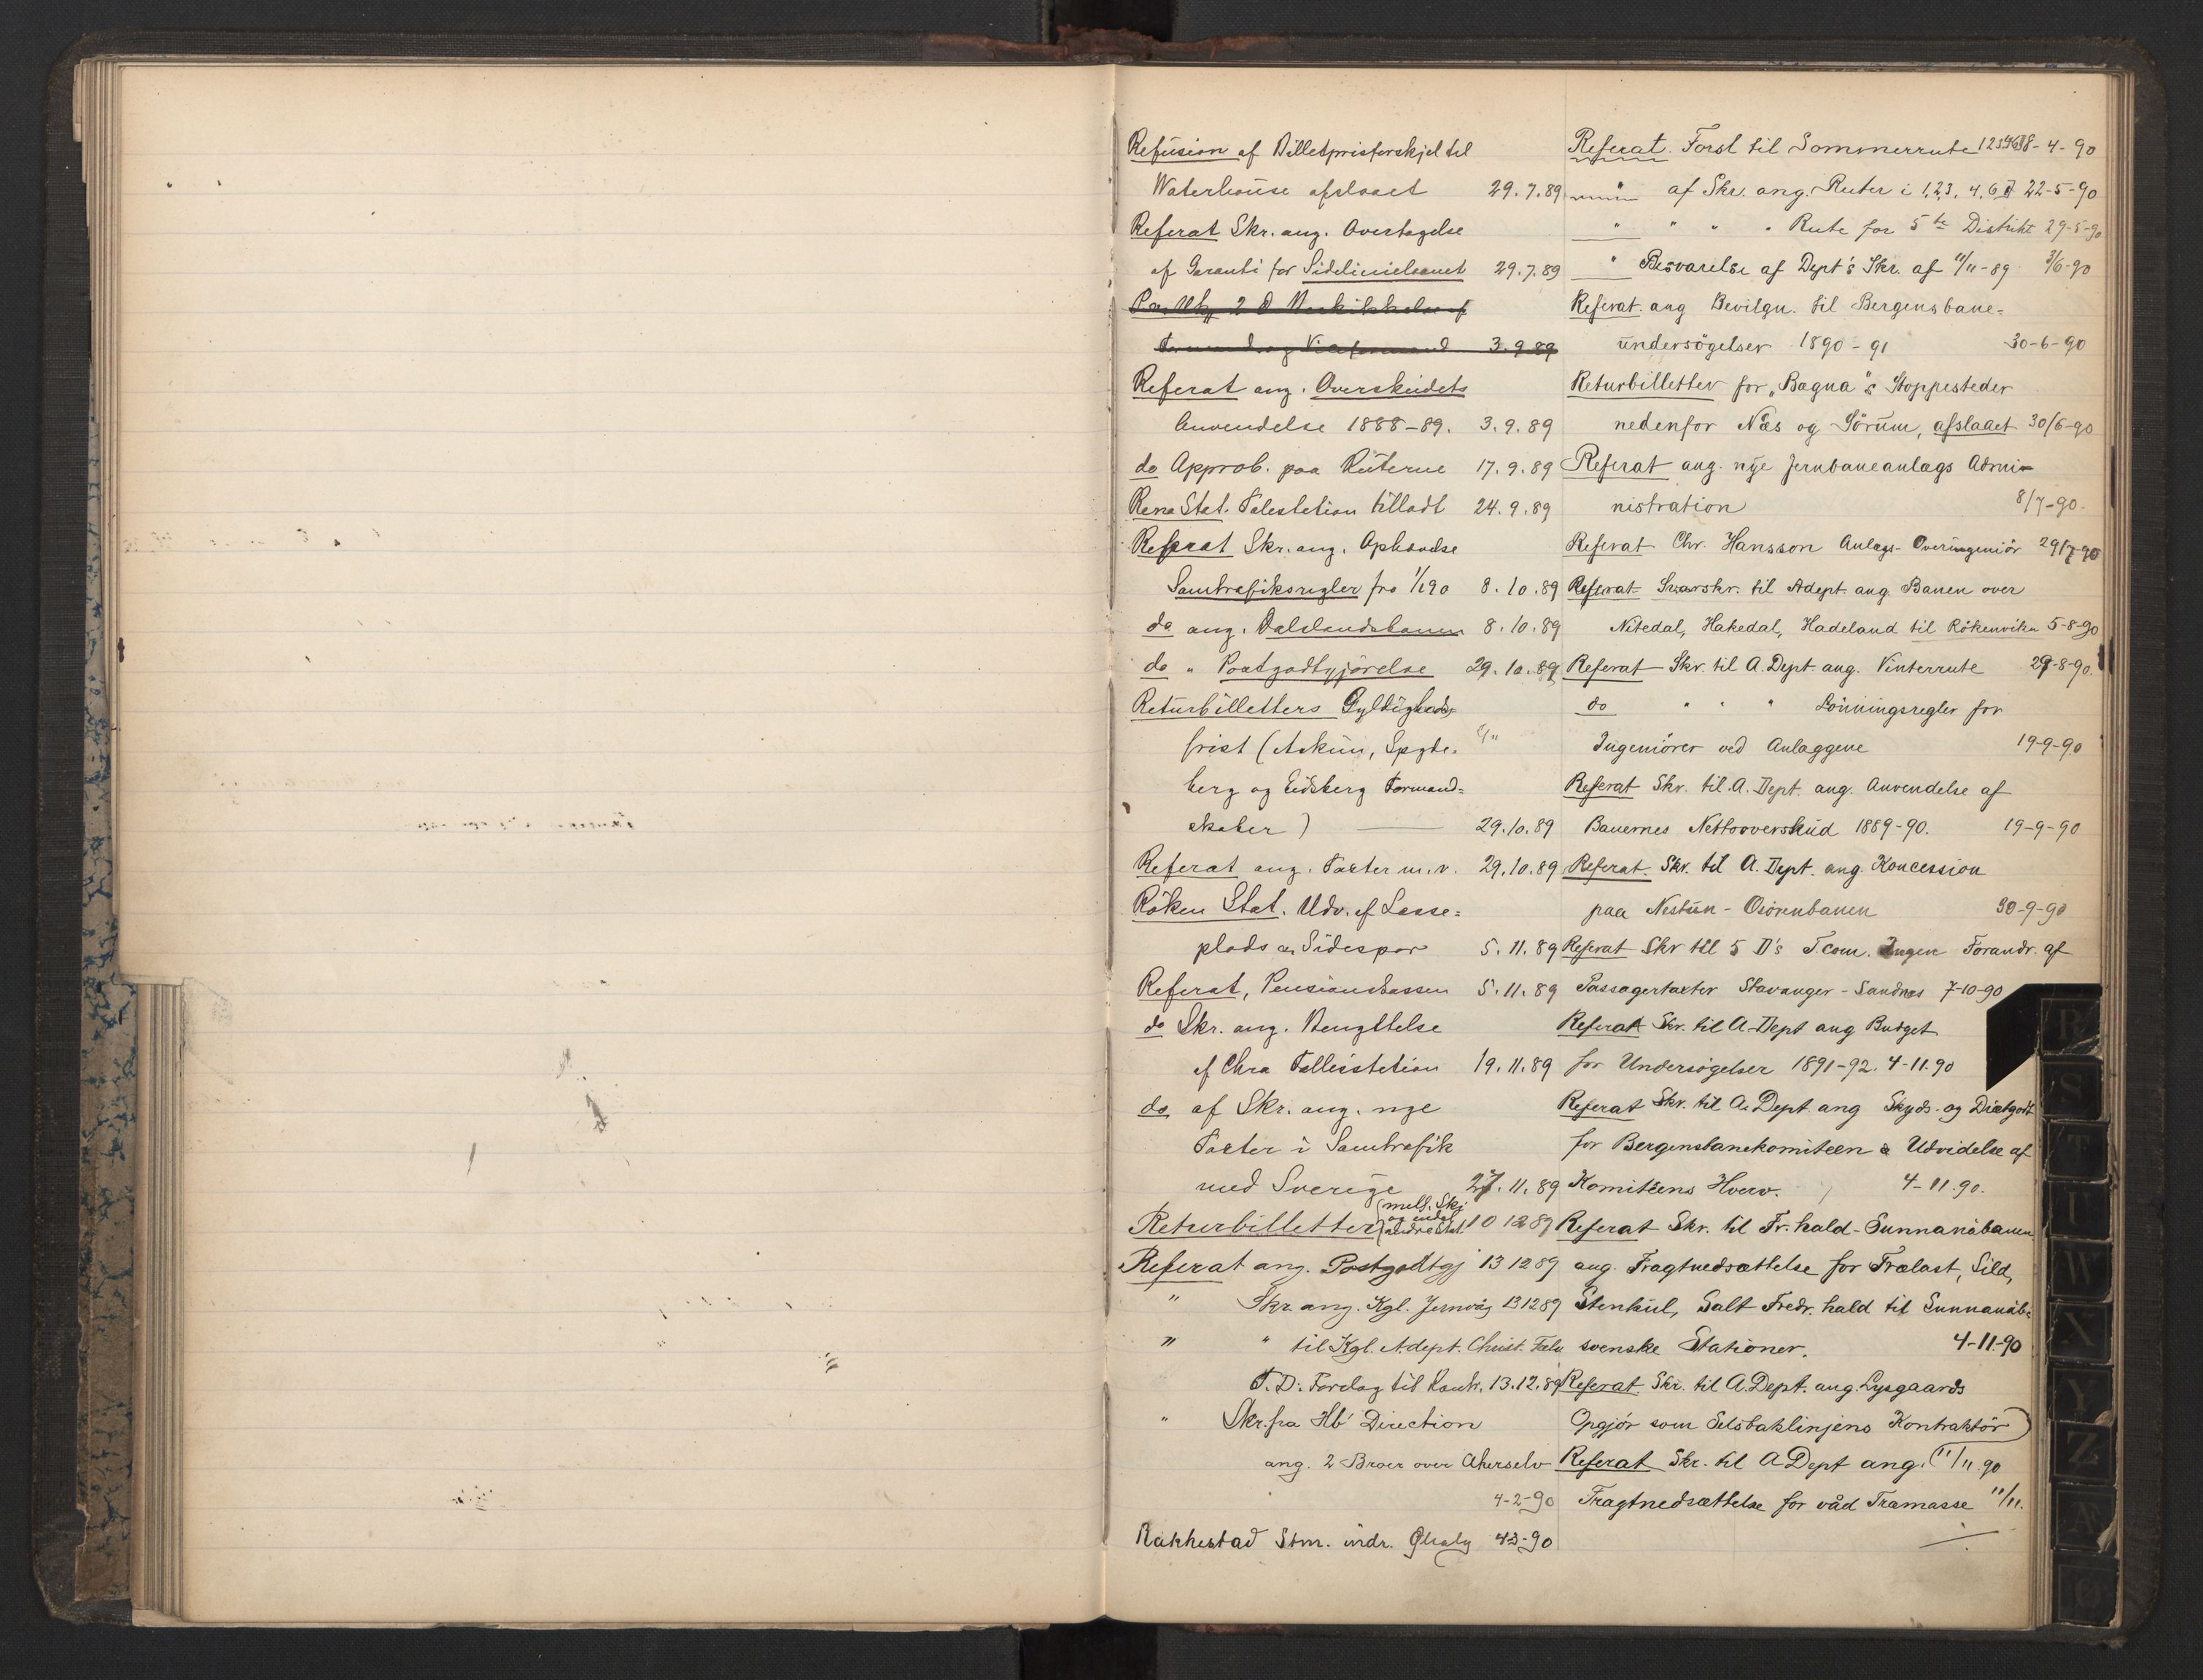 Refusion af Billetprisforskjel til
Waterhouse afslaaet 29.7.89
Referat Skr. ang. Overtagelse
af Garanti for Sidelinielaanet 29.7.89
3.9.89
Referat ang. Overskudets
Anvendelse 1888-89. 3.9.89
do Approb. paa Ruterne 17.9.89
Rena Stat. Telestation tilladt 24.9.89
Referat Skr. ang. Ophævelse
Samtrafiksregler fra 1/1 90 8.10.89
do ang. Dalslandsbanen 8.10.89
do " Postgodtgjörelse 29.10.89
Returbilletters Gyldigheds-
frist (Askim, Spyde-
berg og Eidsberg Formand-
skaber) 29.10.89
Referat ang. Taxter m.v. 29.10.89
Röken Stat. Udv. af Lasse-
plads & Sidespor 5.11.89
Referat, Pensionskassen 5.11.89
do Skr. ang. Benyttelse
af Chra Fællesstation 19.11.89
do af Skr. ang. nye
Taxter i Samtrafik
med Sverige 27.11.89
Returbilletter (mell. Ski
og endel
andre Stat. 10 12 89
Referat ang. Postgodtgj 13 12 89
" Skr. ang. Kgl. Jernväg 13 12 89
" " til Kgl. A.dept. Christ. Fælv
T.D: Forslag til Kontr. 13.12.89
" Skr. fra Hb Direction
ang. 2 Broer over Akerselv
4-2-90
Rakkestad Stm. indr. 4-3-90
Referat. Forsl til Sommerrute 8-4-90
" af Skr. ang. Ruter i 1,2,3, 4, 6 D 22-5-90
" " " " Rute for 5te Distrikt 29-5-90
" Besvarelse af Dept's Skr. af 11/11-89 3/6-90
Referat. ang Bevilgn. til Bergensbane-
undersögelser 1890-91 30-6-90
Returbilletter for "Bagna"s Stoppesteder
nedenfor Næs og Sörum, afslaaet 30/6-90
Referat ang. nye Jernbaneanlags Admi-
nistration 8/7-90.
Referat Chr. Hansson Anlægs-Overingeniör 29/7-90
Referat Svarskr. til Adept. ang Banen over
Nitedal, Hakedal, Hadeland til Rökenviken 5-8-90
Referat Skr. til A. Dept. ang. Vinterrute 29-8-90.
do " " " Lönningsregler for
Ingeniörer ved Anlæggene 19-9-90
Referat Skr. til A. Dept. ang. Anvendelse af
Banernes Nettooverskud 1889-90. 19-9-90
Referat Skr. til A. Dept. ang. Koncession
paa Nestun - Osörenbanen 30-9-90
Referat Skr til 5 D's T.com. Ingen Forandr. af
Passagertaxter Stavanger - Sandnes 7-10-90
Referat Skr. til A. Dept ang Budget
for Undersögelser 1891-92. 4-11.90
Referat Skr. til A. Dept ang Skyds- og Diætgodt
for Bergensbanekomitéen & Udvidelse af
Komitéens Hverv. 4-11.90.
Referat Skr. til Fr.hald-Sunnanåbanen
ang. Fragtnedsættelse for Trælast, Sild,
Stenkul, Salt Fredr.hald til Sunnanåb-
svenske Stationer. 4-11-90
Referat. Skr. til A. Dept. ang. Lysgaards
Opgjör som Selsbaklinjens Kontraktör
Referat Skr. til A Dept ang. 11/11 90
Fragtnedsættelse for våd Træmasse 11/11.
R
S
T
U
W
X
Y
Z
Æ
Ø